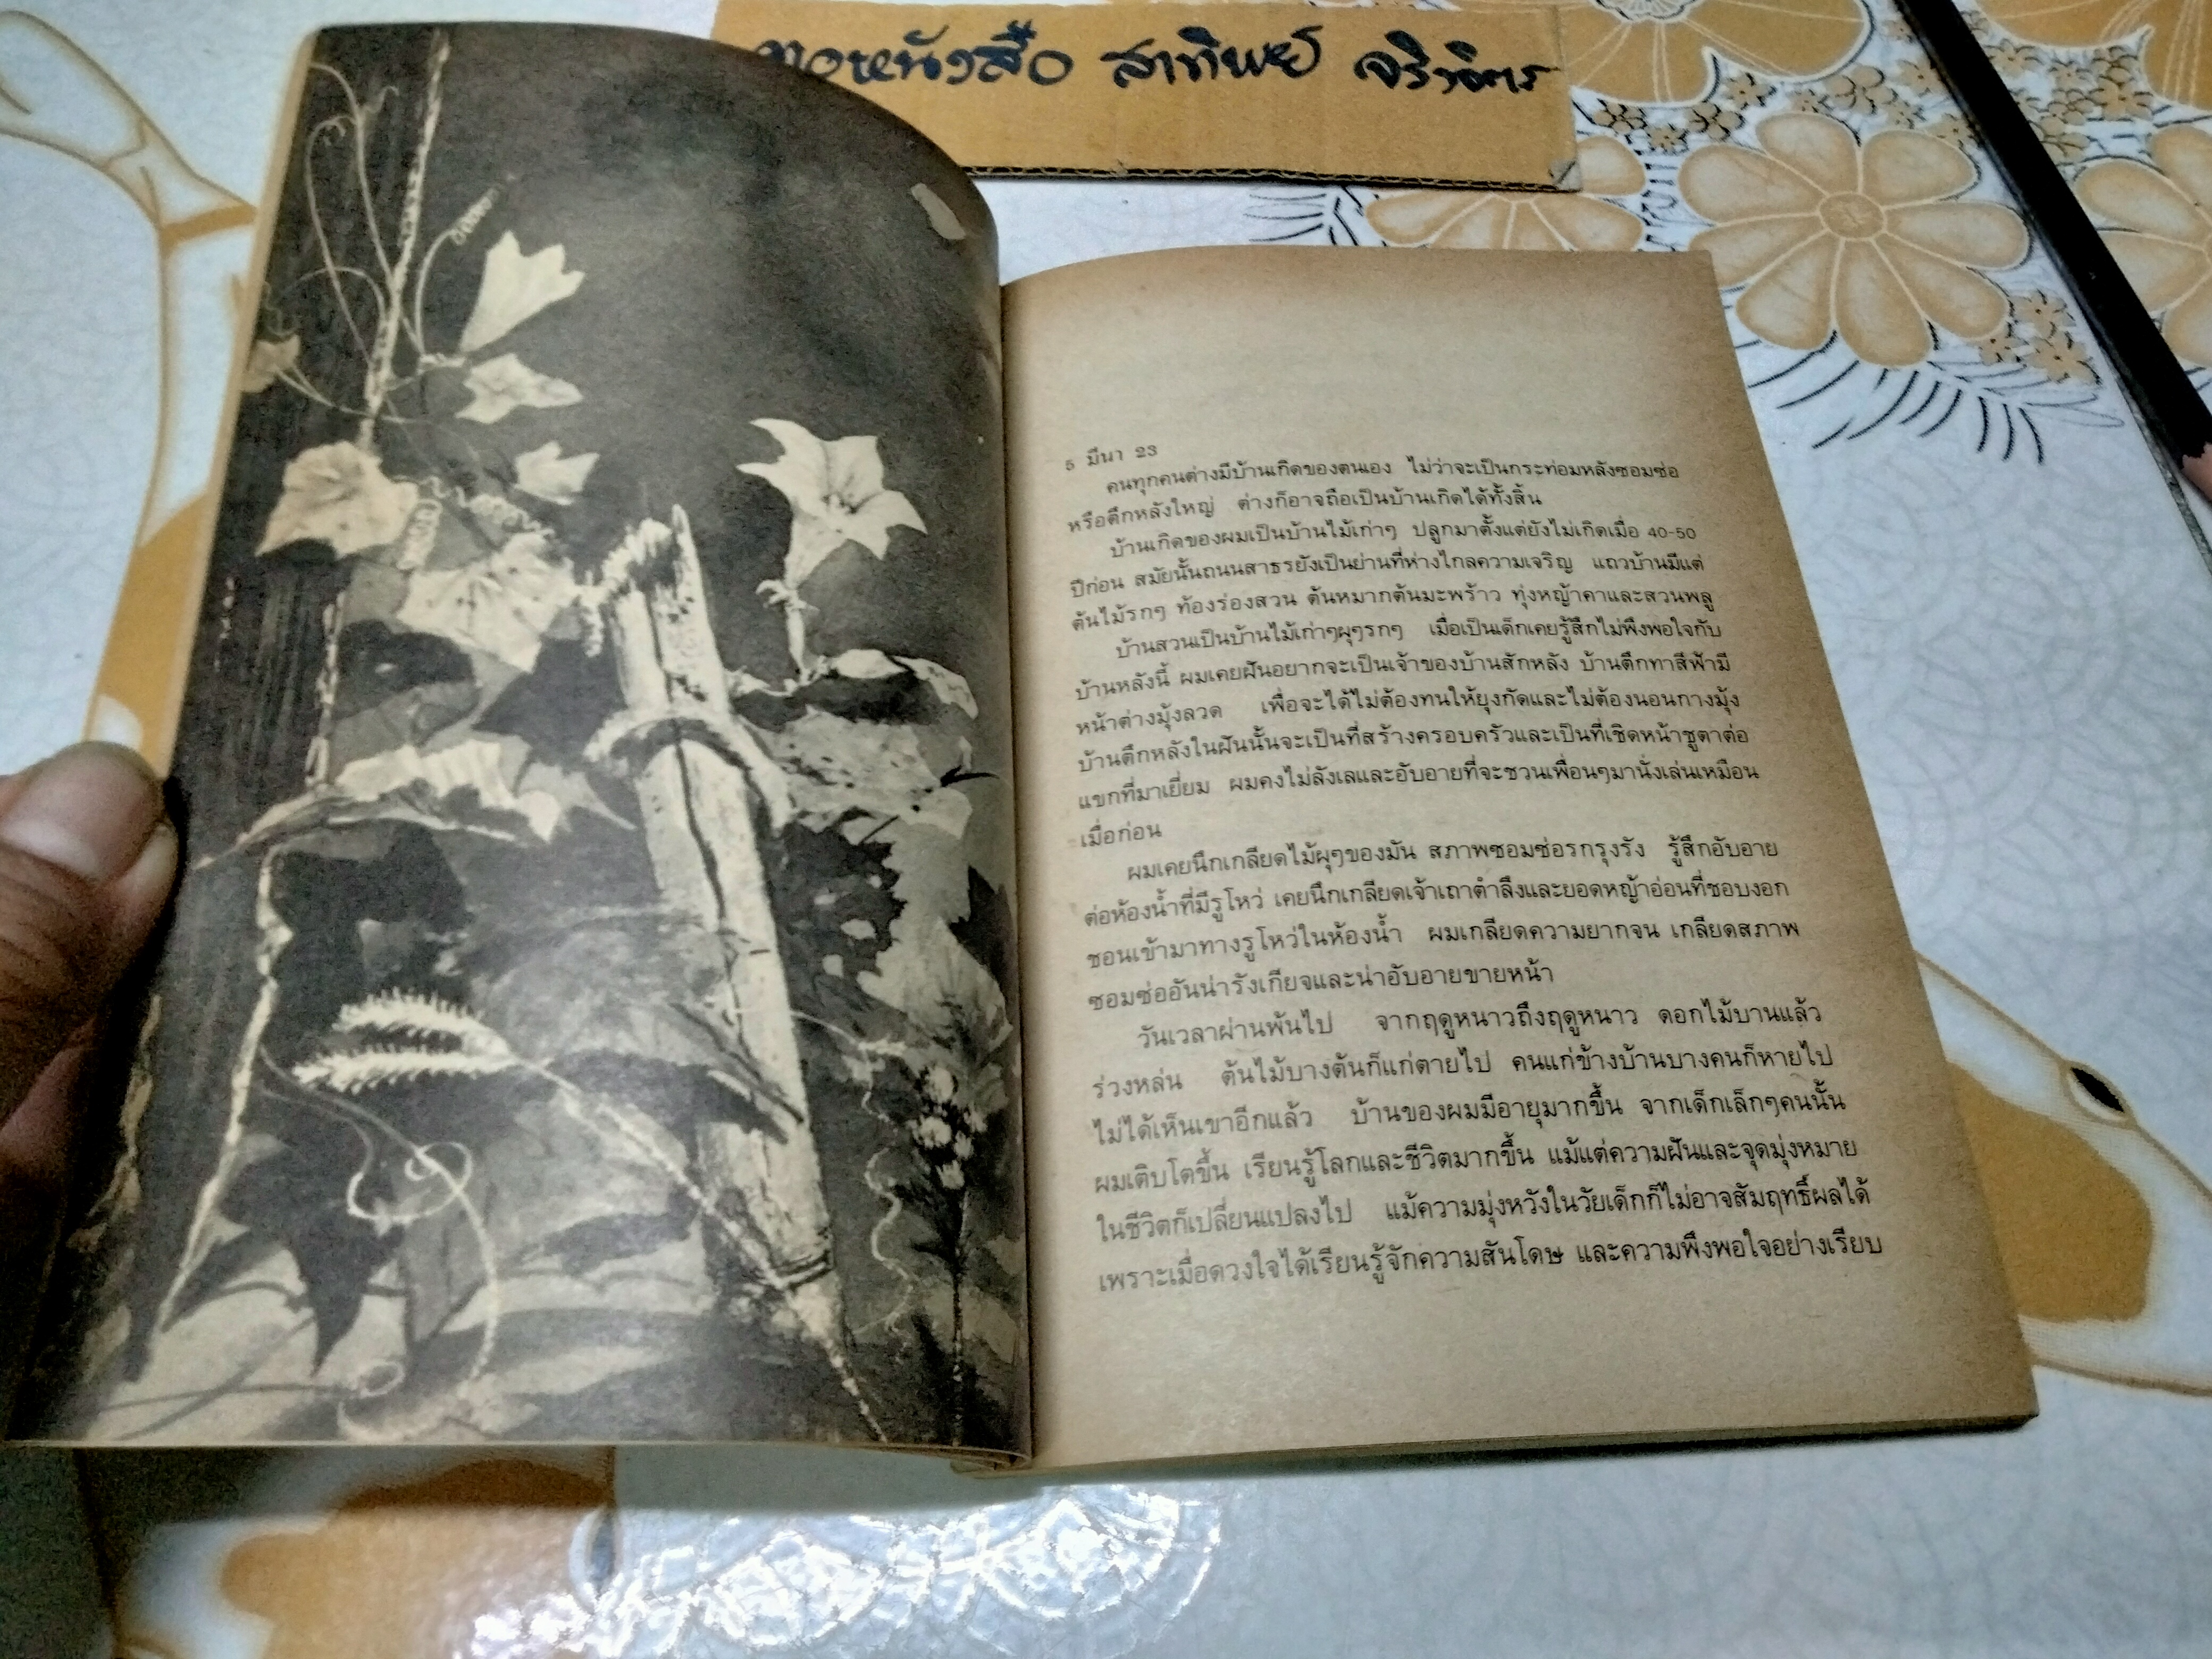 หนังสือ สาทิพย์ จริงจิตร
5 มีนา 23
คนทุกคนต่างมีบ้านเกิดของตนเอง ไม่ว่าจะเป็นกระท่อมหลังซอมซ่อ
หรือตึกหลังใหญ่ ต่างก็อาจถือเป็นบ้านเกิดได้ทั้งสิ้น
บ้านเกิดของผมเป็นบ้านไม้เก่าๆ ปลูกมาตั้งแต่ยังไม่เกิดเมื่อ 40-50
ปีก่อน สมัยนั้นถนนสาธรยังเป็นย่านที่ห่างไกลความเจริญ แถวบ้านมีแต่
ต้นไม้รกๆ ท้องร่องสวน ต้นหมากต้นมะพร้าว ทุ่งหญ้าคาและสวนพลู
บ้านสวนเป็นบ้านไม้เก่าๆผุๆรกๆ เมื่อเป็นเด็กเคยรู้สึกไม่พึงพอใจกับ
บ้านหลังนี้ ผมเคยฝันอยากจะเป็นเจ้าของบ้านสักหลัง บ้านตึกทาสีฟ้ามี
หน้าต่างมุ้งลวด เพื่อจะได้ไม่ต้องทนให้ยุงกัดและไม่ต้องนอนกางมุ้ง
บ้านตึกหลังในฝันนั้นจะเป็นที่สร้างครอบครัวและเป็นที่เชิดหน้าชูตาต่อ
แขกที่มาเยี่ยม ผมคงไม่ลังเลและอับอายที่จะชวนเพื่อนๆมานั่งเล่นเหมือน
เมื่อก่อน
ผมเคยนึกเกลียดไม้ผุๆของมัน สภาพซอมซ่อรกรุงรัง รู้สึกอับอาย
ต่อห้องน้ำที่มีรูโหว่ เคยนึกเกลียดเจ้าเถาตำลึงและยอดหญ้าอ่อนที่ชอบงอก
ชอนเข้ามาทางรูโหว่ในห้องน้ำ ผมเกลียดความยากจน เกลียดสภาพ
ซอมซ่ออันน่ารังเกียจและน่าอับอายขายหน้า
วันเวลาผ่านพ้นไป จากฤดูหนาวถึงฤดูหนาว ดอกไม้บานแล้ว
ร่วงหล่น ต้นไม้บางต้นก็แก่ตายไป คนแก่ข้างบ้านบางคนก็หายไป
ไม่ได้เห็นเขาอีกแล้ว บ้านของผมมีอายุมากขึ้น จากเด็กเล็กๆคนนั้น
ผมเติบโตขึ้น เรียนรู้โลกและชีวิตมากขึ้น แม้แต่ความฝันและจุดมุ่งหมาย
ในชีวิตก็เปลี่ยนแปลงไป แม้ความมุ่งหวังในวัยเด็กก็ไม่อาจสัมฤทธิ์ผลได้
เพราะเมื่อดวงใจได้เรียนรู้จักความสันโดษ และความพึงพอใจอย่างเรียบ